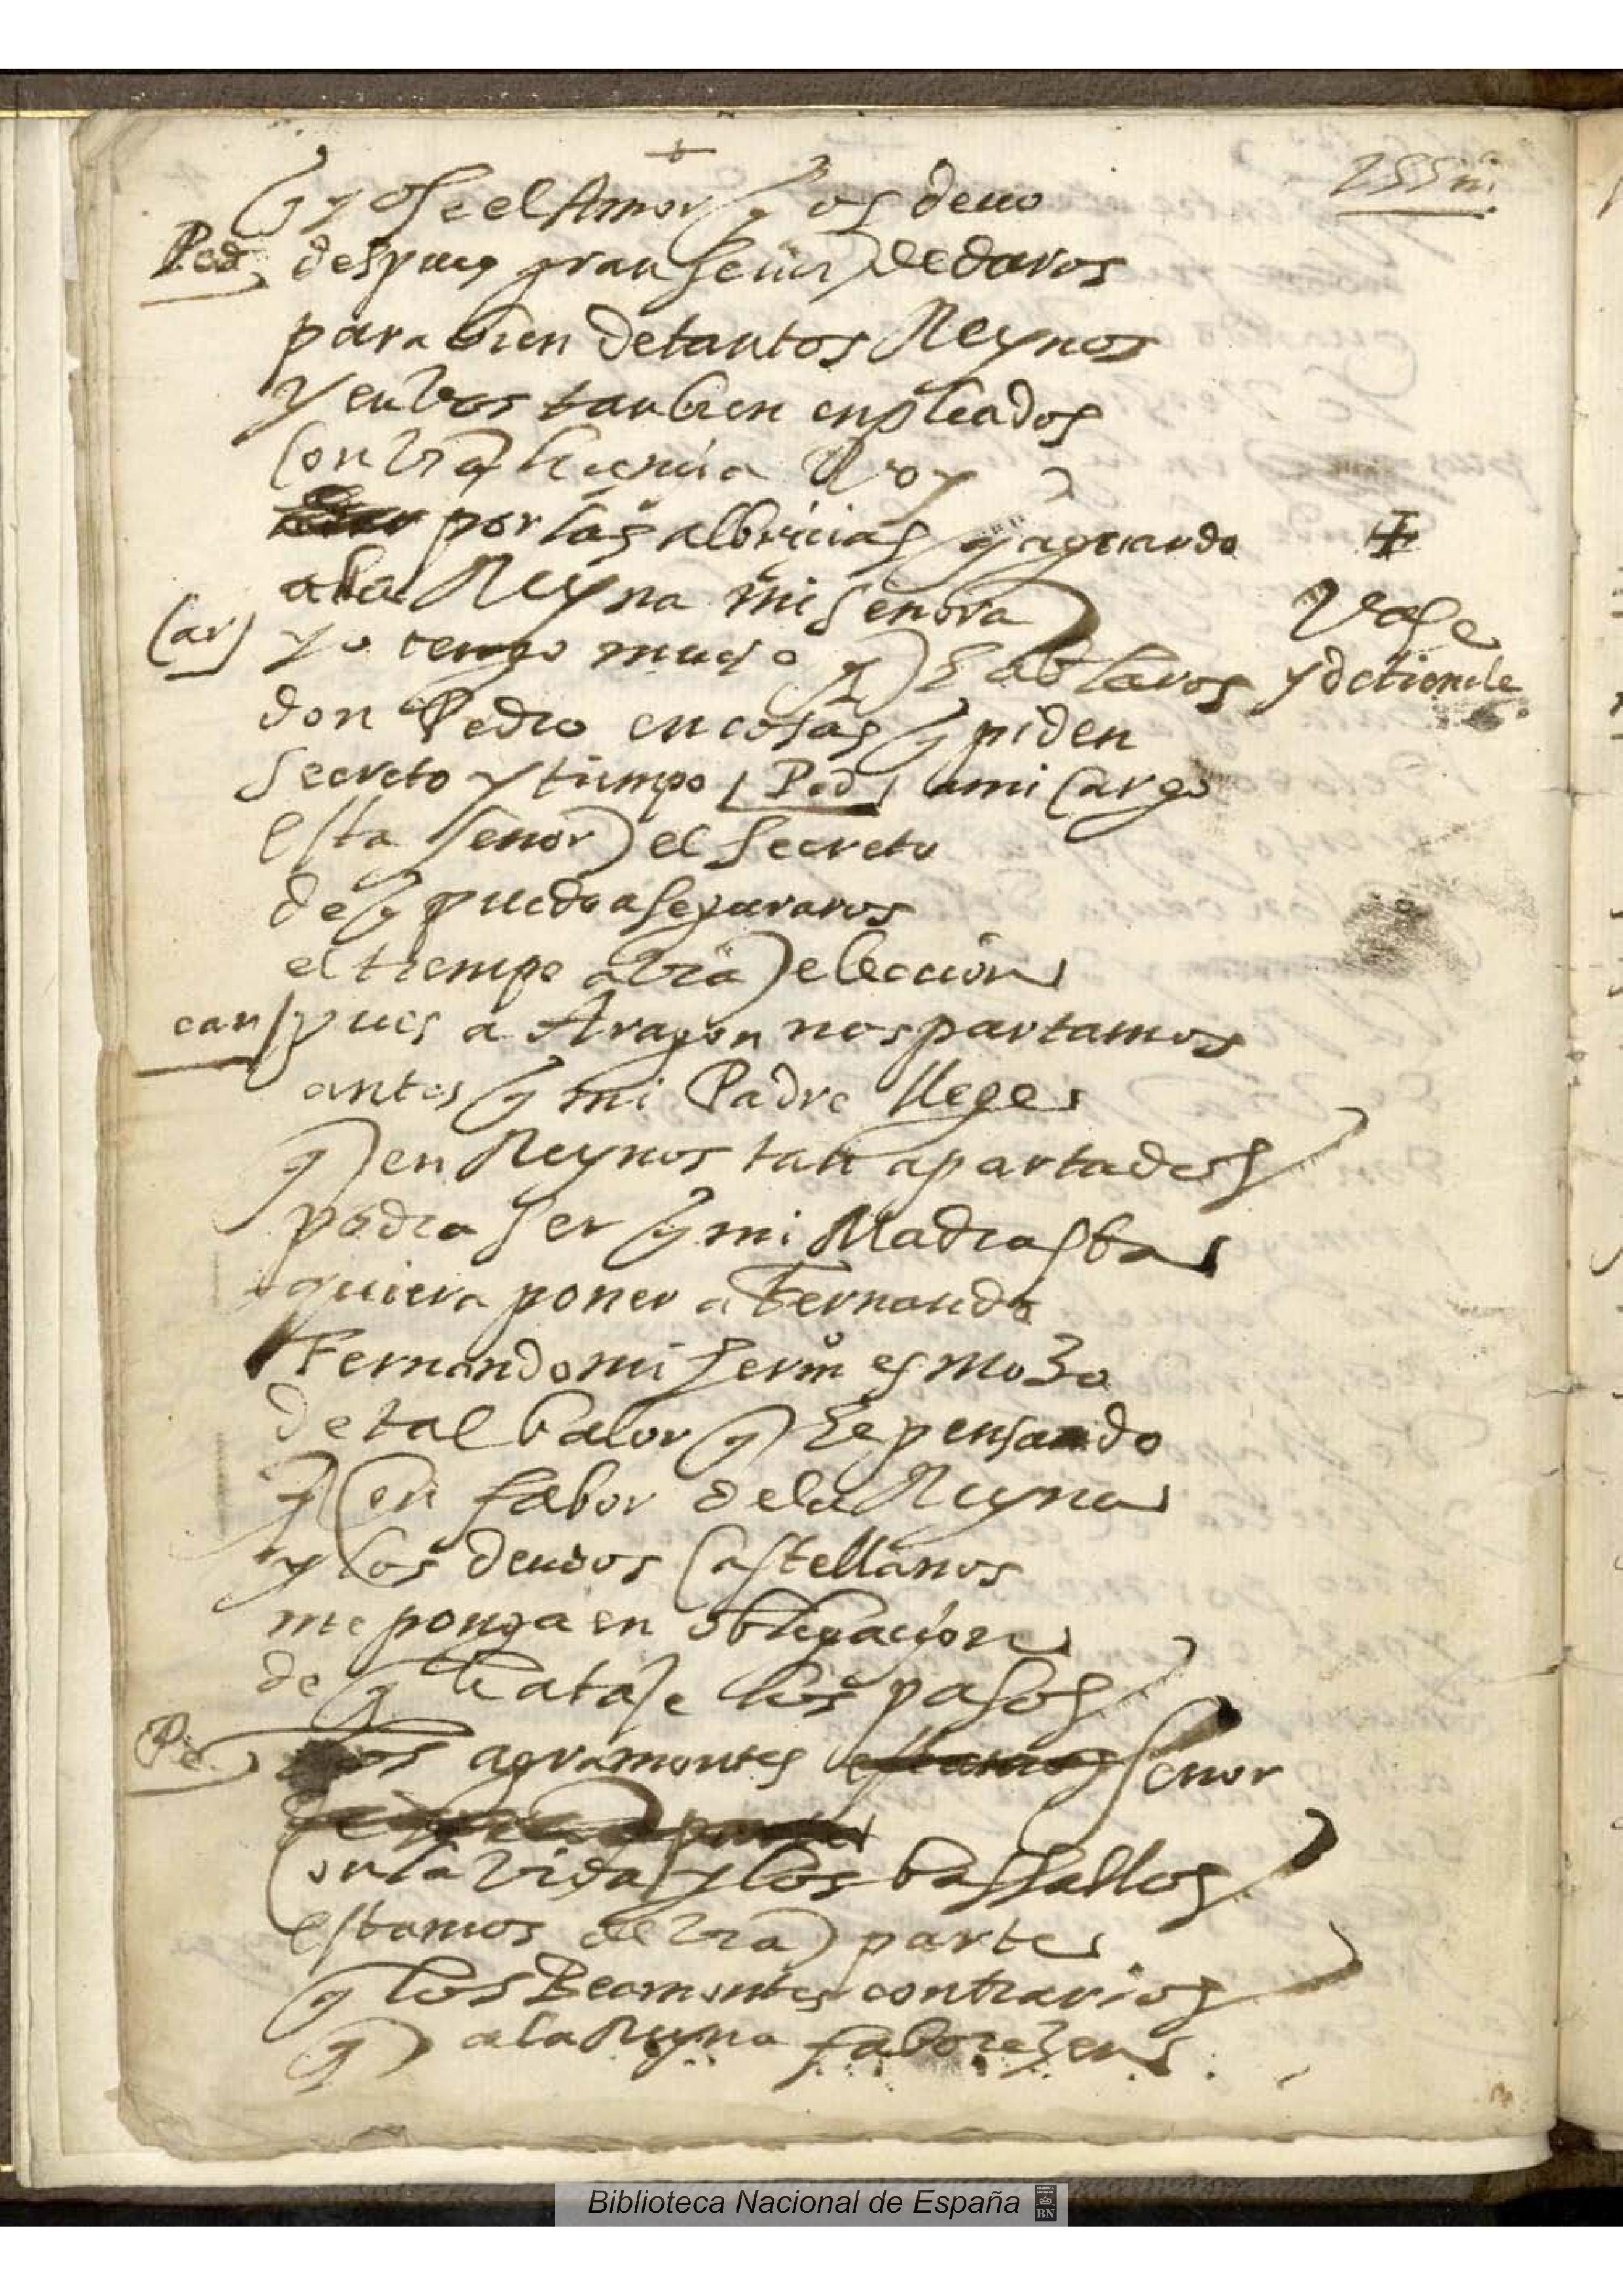 q yo se el Amor q os deuo
Ped despues gran señor de daros
parabien de tantos Reynos
y en bos tanbien enpleados
con vra licencia Voy
por las albricias q aguardo
a la Reyna mi señora
Vase
y detienele
Car yo tengo mucho q hablaros
don Pedro en cosas q piden
secreto y tiempo / Ped / a mi cargo
esta señor el secreto
de q puedo aseguraros
el tiempo a vra eleccion
car pues a Aragon nos partamos
antes q mi Padre llege
q en Reynos tan apartados
podra ser q mi Madrastra
quiera poner a Fernando
Fernando mi hermo es mozo
de tal balor q he pensando
q con fabor de la Reyna
y los deudos Castellanos
me ponga en obligacion
de q le ataje los pasos
Pe los agramontes señor
con la vida y los bassallos
estamos de vra parte
q los Beamontes contrarios
q a la Reyna faborezen
Biblioteca Nacional de España
BN